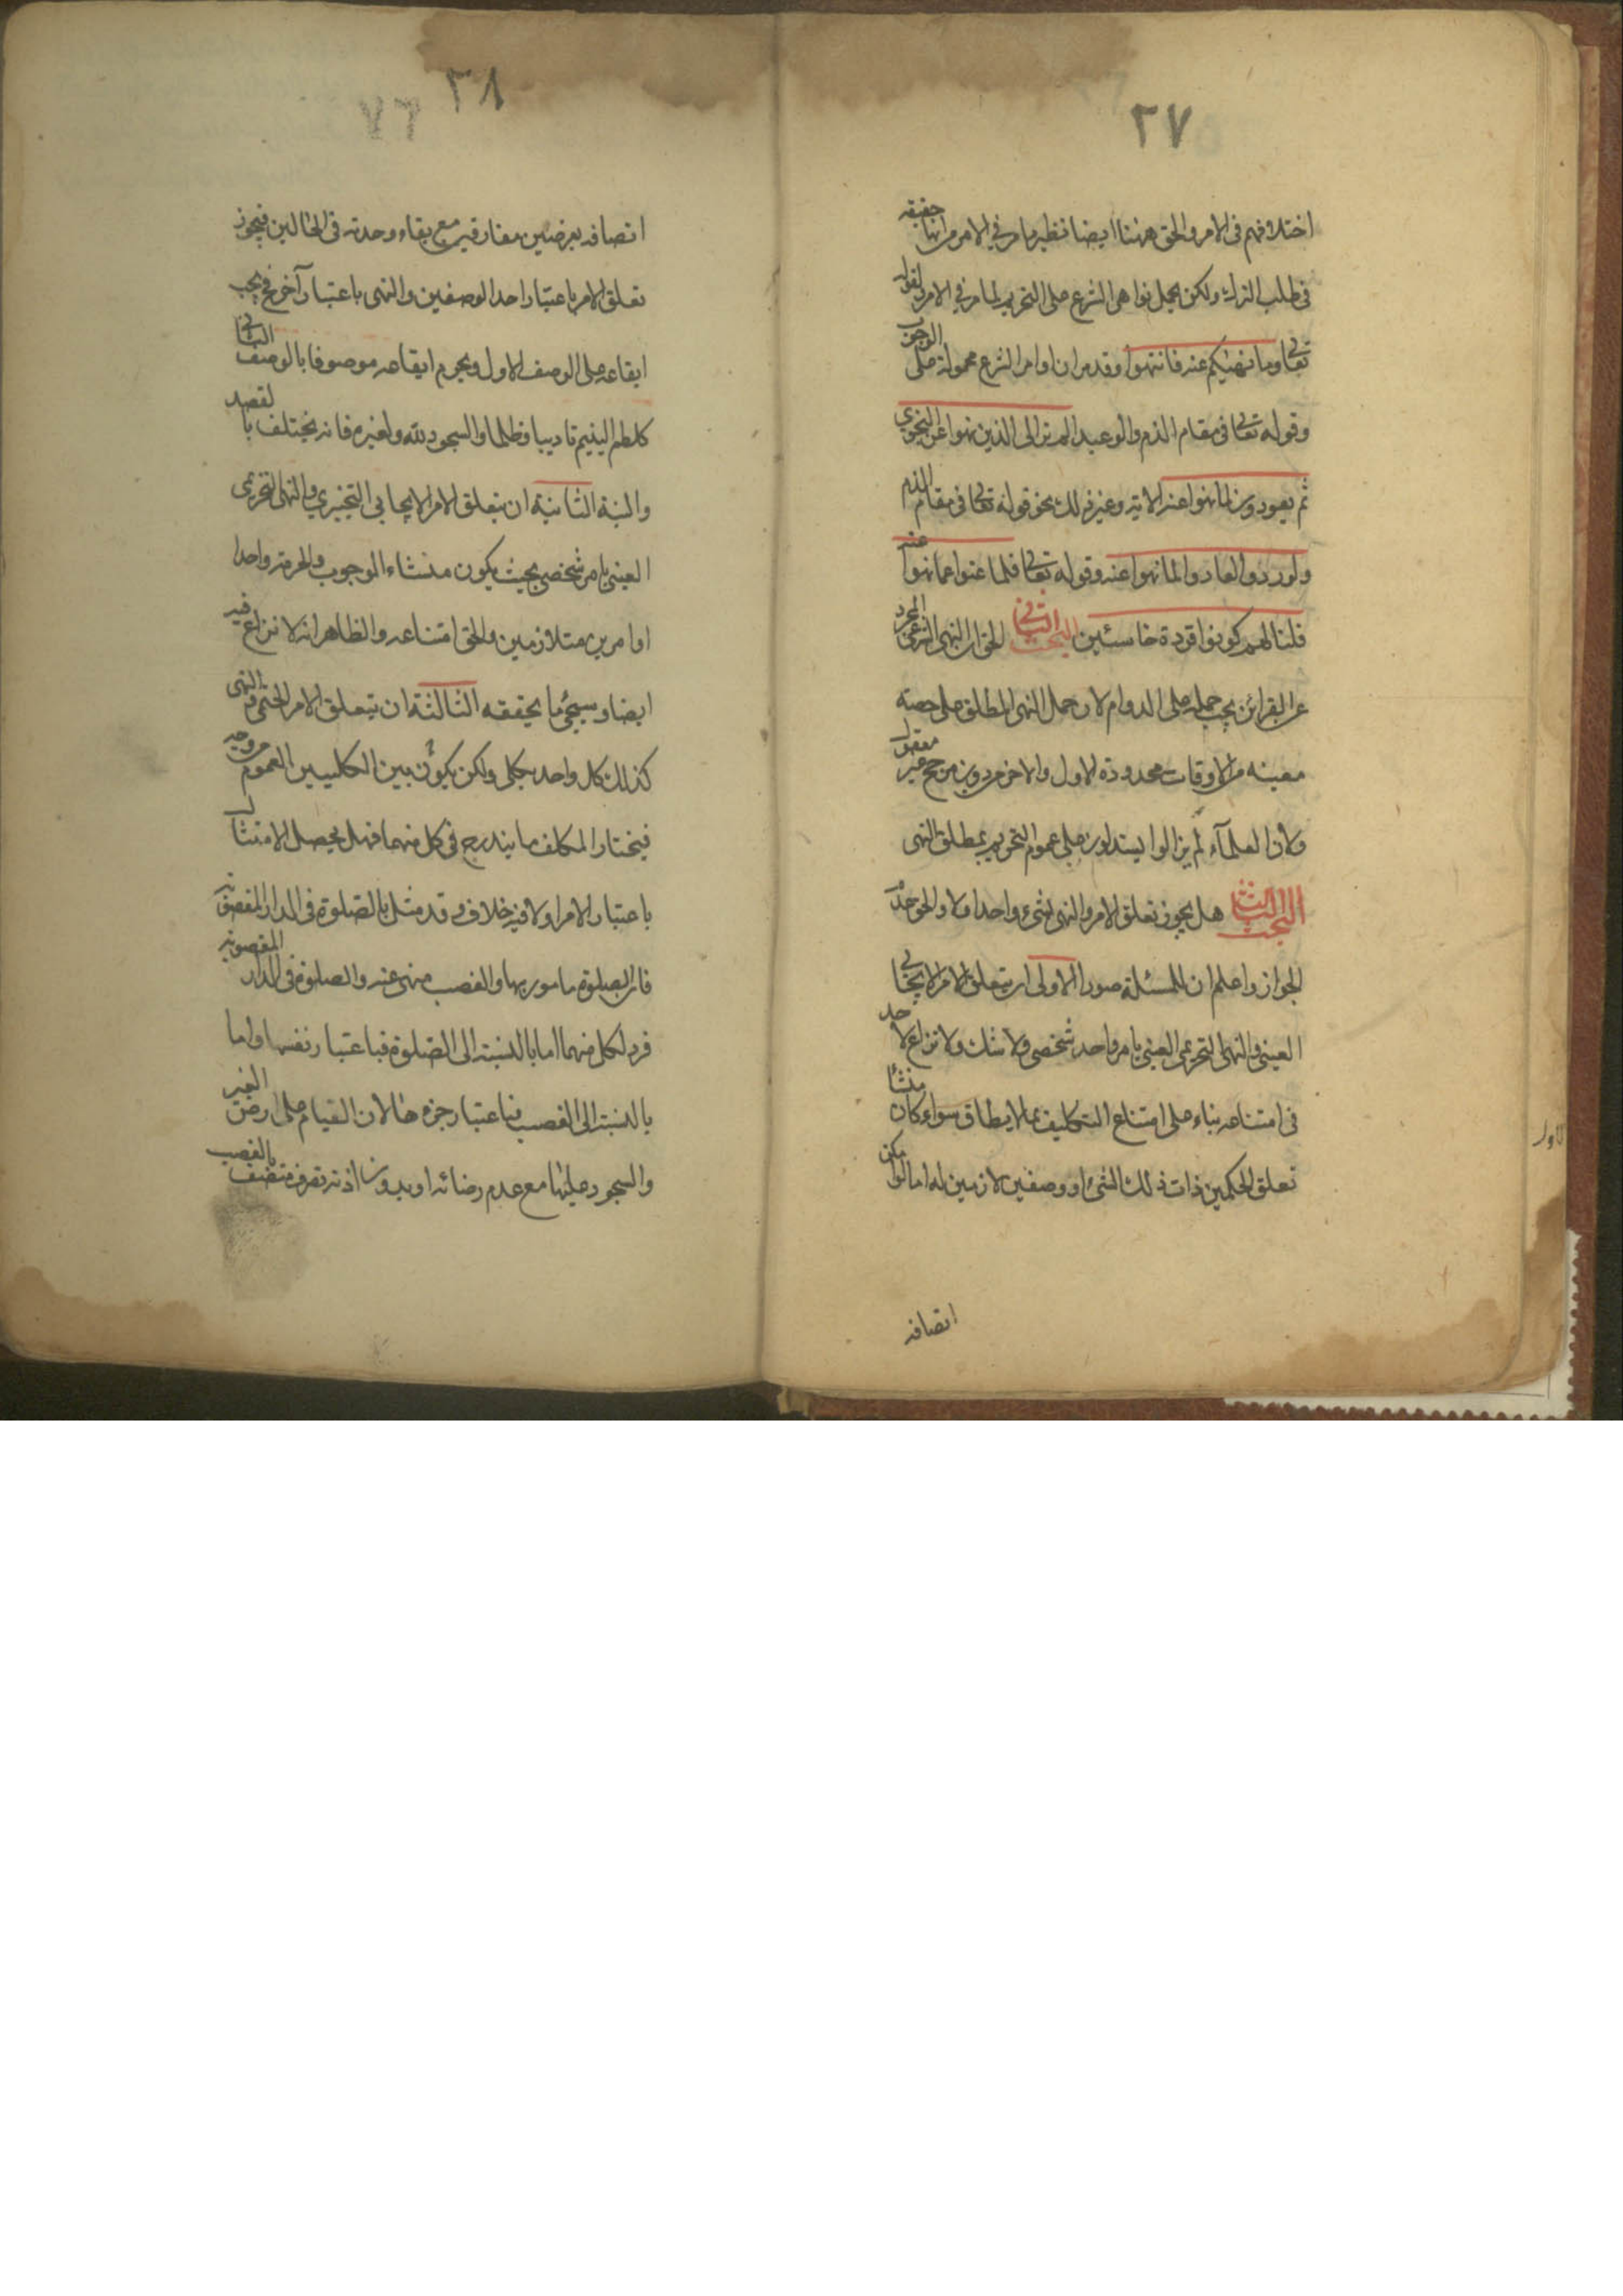 ٢٧
اختلافهم فى الامر والحق ههنا ايضا نظير ما مر فى الامر من انها حقيقه
فى طلب الترك ولكن يحمل نواهى الشرع على التحريم لما مر فى الامر ولقوله
تعالى وما نهيكم عنه فانتهوا وقد مر ان اوامر الشرع محمولة على الوجوب
وقوله تعالى فى مقام الذم والوعيد الم تر الى الذين نهوا عن النجوى
ثم يعودون لما نهوا عنه الاية وغير ذلك نحو قوله تعالى فى مقام الذم
ولو ردوا لعادوا لما نهوا عنه وقوله تعالى فلما عتوا عما نهوا عنه
قلنا لهم كونوا قردة خاسئين البحث الثانى الحق ان النهى الشرعى المجرد
عن القرائن يجب حمله على الدوام لان حمل النهى المطلق على حصته
معينه من الاوقات محدودة الاول والاخر من دون مرجح غير معقول
ولان العلمآء لم يزالوا يستدلون على عموم التحريم بمطلق النهى
البحث الثالث هل يجوز تعلق الامر والنهى بشىء واحد اولا والحق عدم
الجواز واعلم ان للمسئلة صور الاولى ان يتعلق الامر الايجابى
العينى والنهى التحريمى العينى بامر واحد شخصى ولا شك ولا نزاع لاحد
فى امتناعه بناء على امتناع التكليف بما لا يطاق سواء كان منشأ
تعلق الحكمين ذات ذلك الشىء او وصفين لازمين له اما لو امكن
اتصافه
٢٨
٧٦
اتصافه بعرضين مفارقين مع بقاء وحدته فى الحالين فيجوز
تعلق الامر باعتبار احد الوصفين والنهى باعتبار آخر فيجب
ايقاعه على الوصف الاول ويحرم ايقاعه موصوفا بالوصف الثانى
كلطم اليتيم تاديبا وظلما والسجود لله ولغيره فانه يختلف بالقصد
والمنية الثانية ان يتعلق الامر الايجابى التخييرى والنهى التحريمى
العينى بامر شخصى بحيث يكون منشاء الوجوب والحرمة واحدا
او امرين متلازمين والحق امتناعه والظاهر انه لا نزاع فيه
ايضا وسيجئ ما يحققه الثالثة ان يتعلق الامر الحتمى والنهى
كذلك كل واحد بكلى ولكن يكون بين الكليين العموم من وجه
فيختار المكلف ما يندرج فى كل منهما فهل يحصل الامتثال
باعتبار الامر اولا فيه خلاف وقد مثل بالصلوة فى الدار المغصوبة
فان الصلوة مامور بها والغصب منهى عنه والصلوة فى الدار المغصوبة
فرد لكل منهما اما بالنسبة الى الصلوة فباعتبار نفسها واما
بالنسبة الى الغصب فباعتبار جزءها لان القيام على ارض الغير
والسجود عليها مع عدم رضائه او بدون اذنه تصرف متصف بالغصب